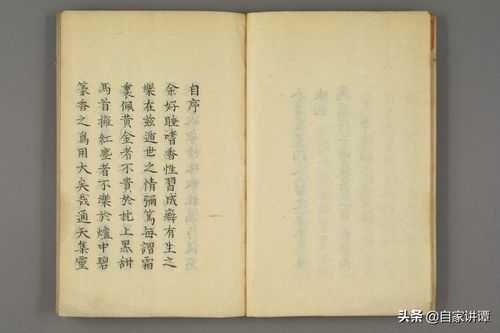 自序
余好睡嗜香性習成癖有生之
樂在茲遁世之情彌篤每謂霜
裏佩黃金者不貴於枕上黑甜
馬首擁紅塵者不樂於爐中碧
篆香之爲用大矣哉通天集靈
头条 @自家讲谭